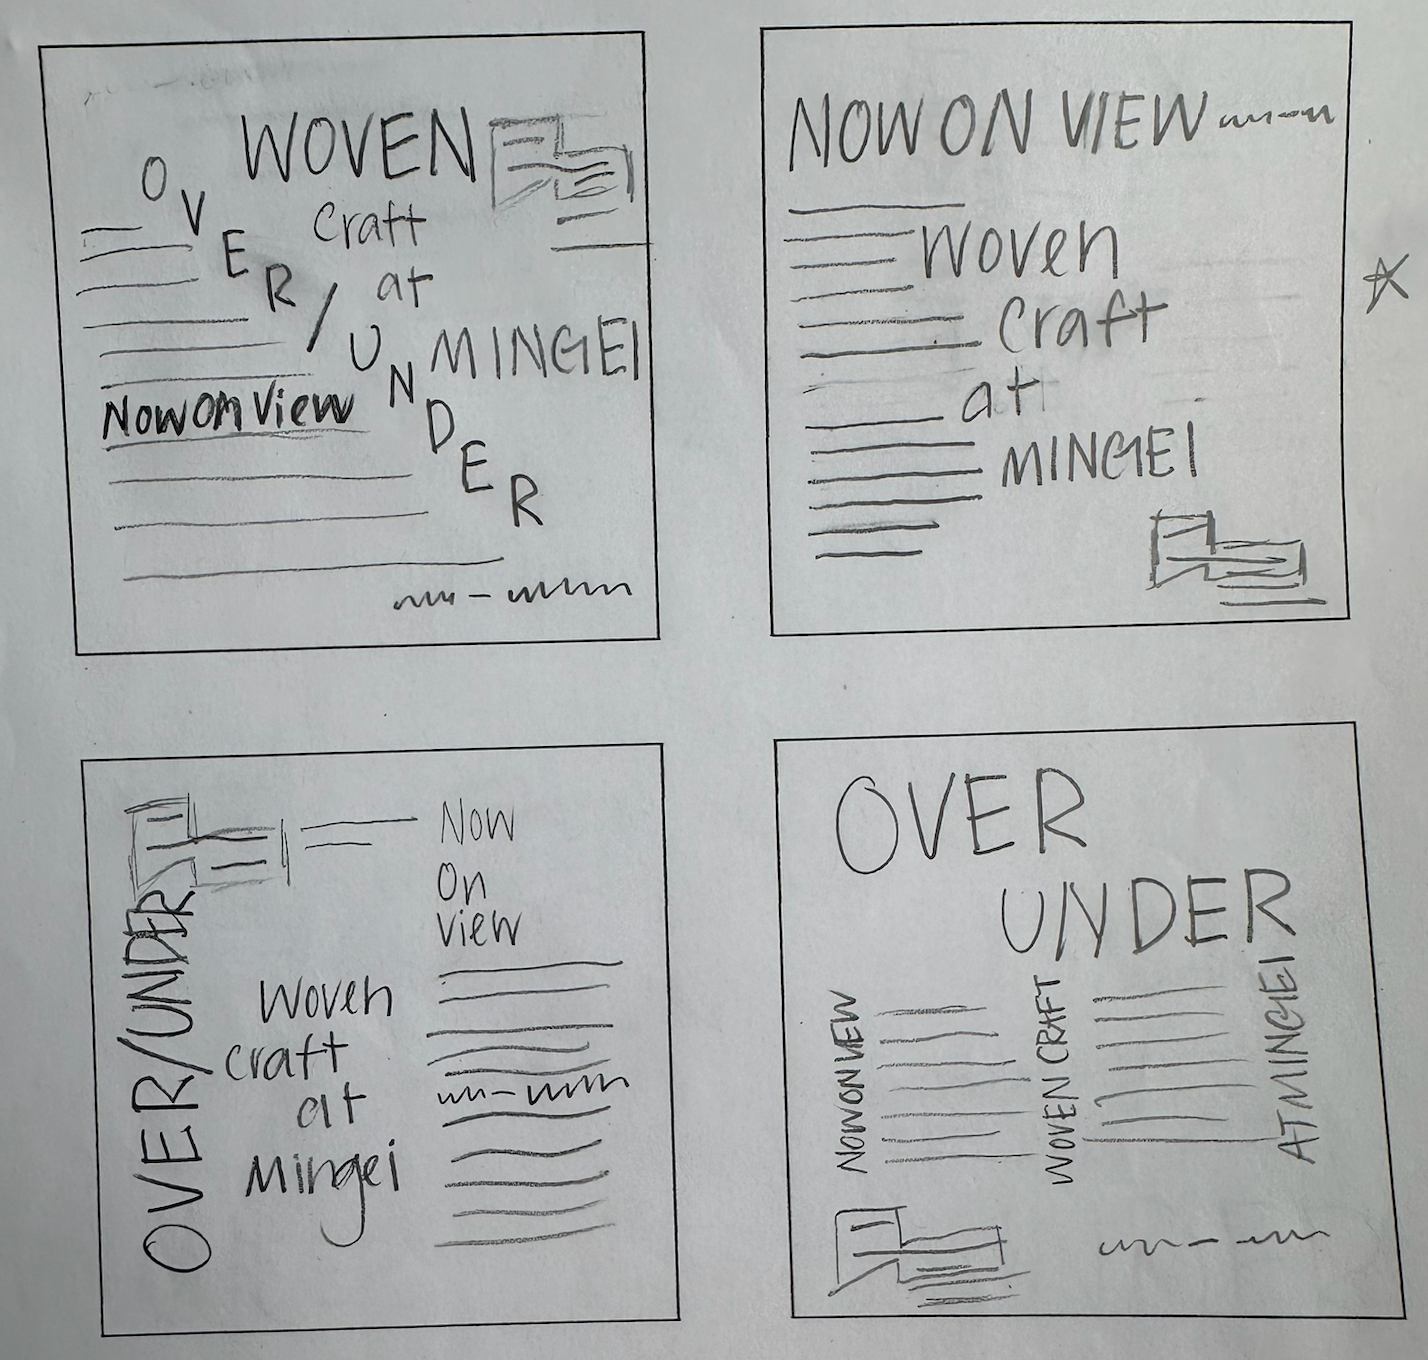 WOVEN
OVER/UNDER
Craft
at
MINGEI
Now On View
NOW ON VIEW
Woven
Craft
at
MINGEI
OVER/UNDER
Now
On
View
Woven
craft
at
Mingei
OVER
UNDER
NOW ON VIEW
WOVEN CRAFT
AT MINGEI